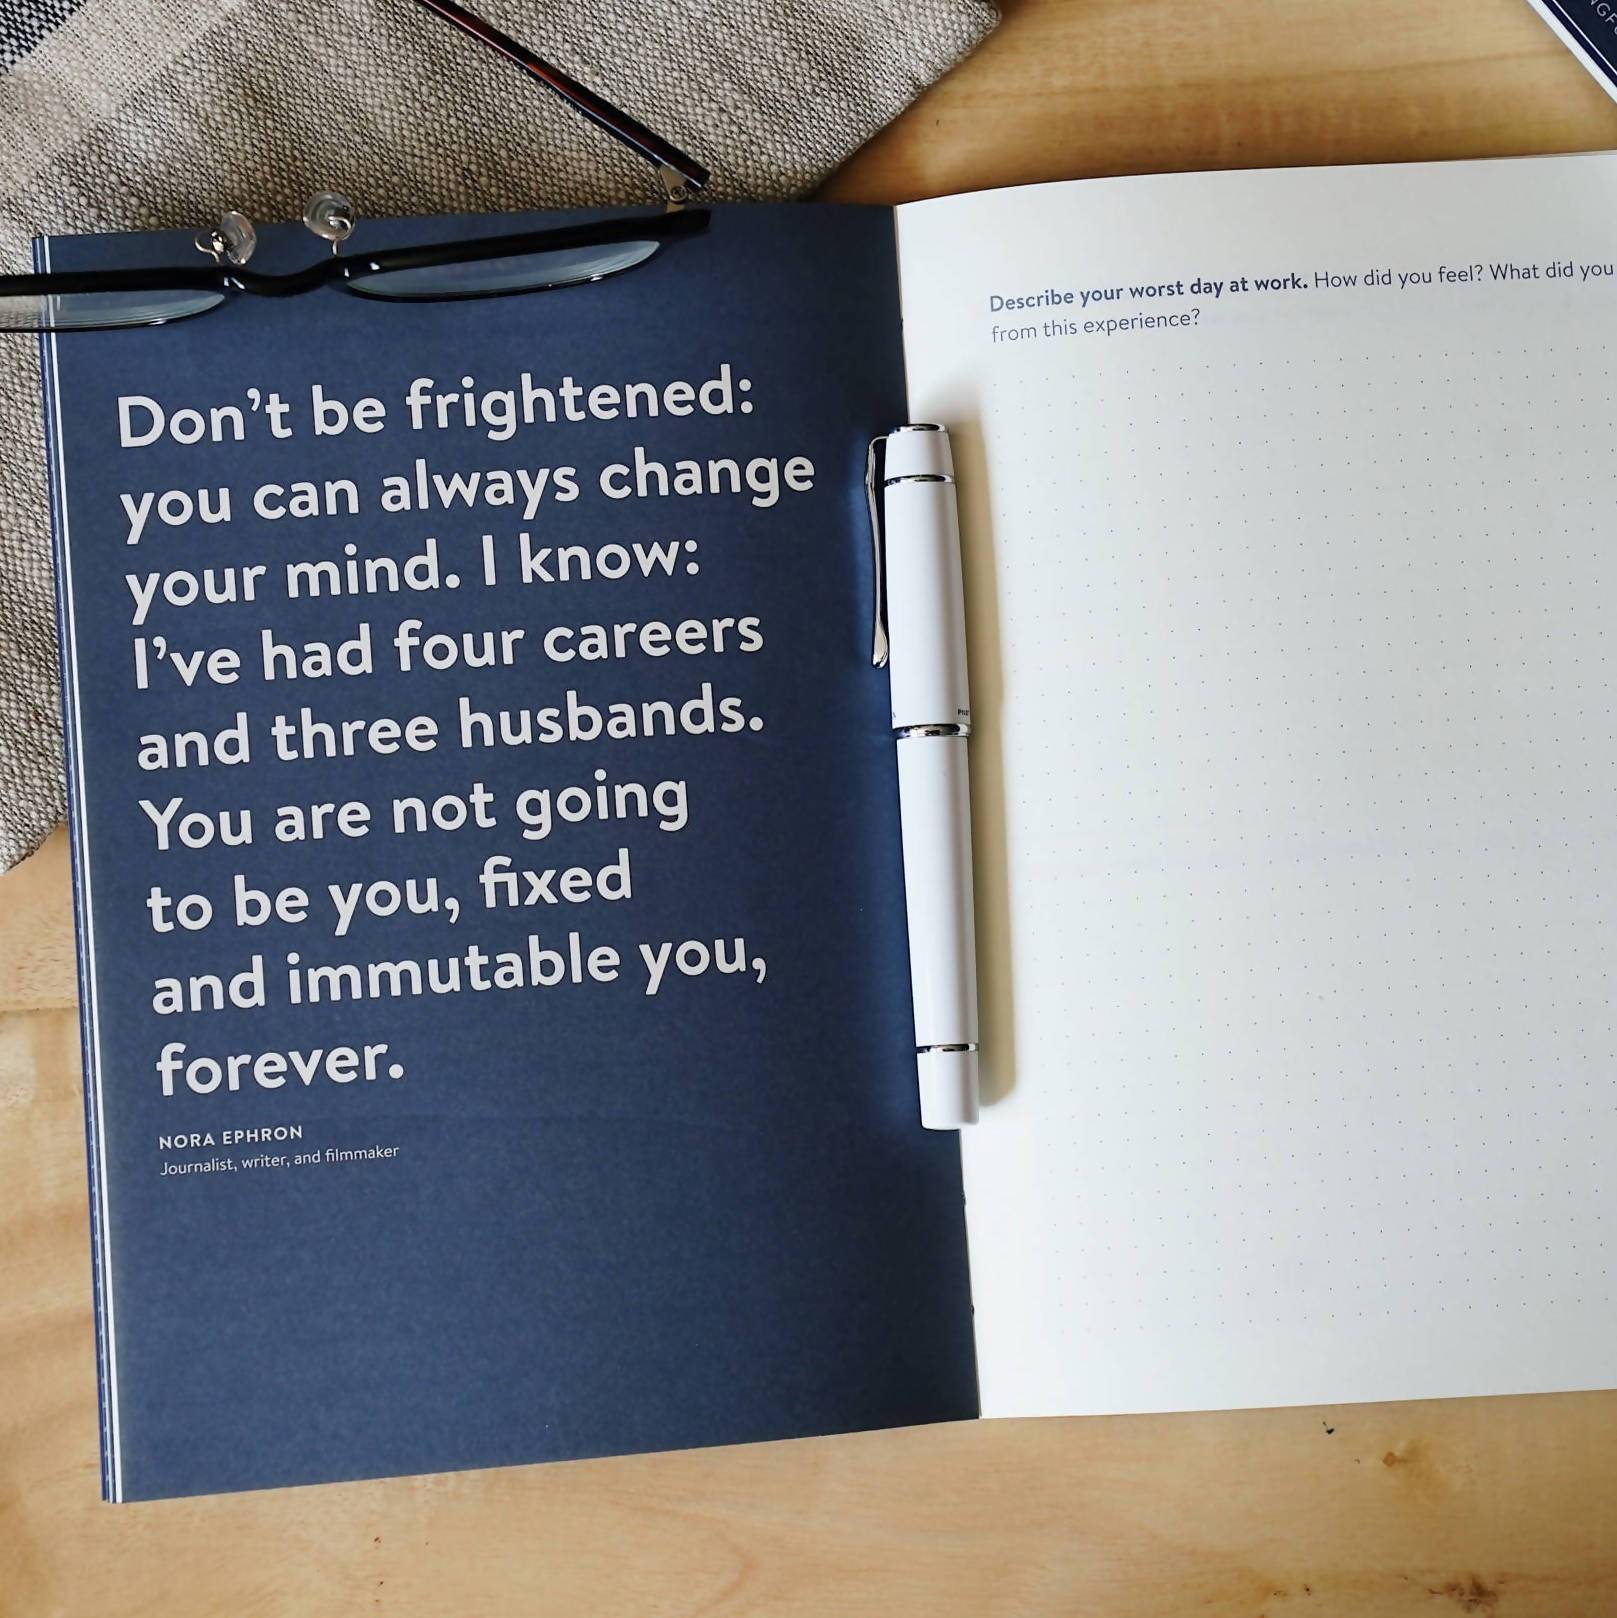 Don't be frightened:
you can always change
your mind. I know:
I've had four careers
and three husbands.
You are not going
to be you, fixed
and immutable you,
forever.
NORA EPHRON
Journalist, writer, and filmmaker
Describe your worst day at work. How did you feel? What did you
from this experience?